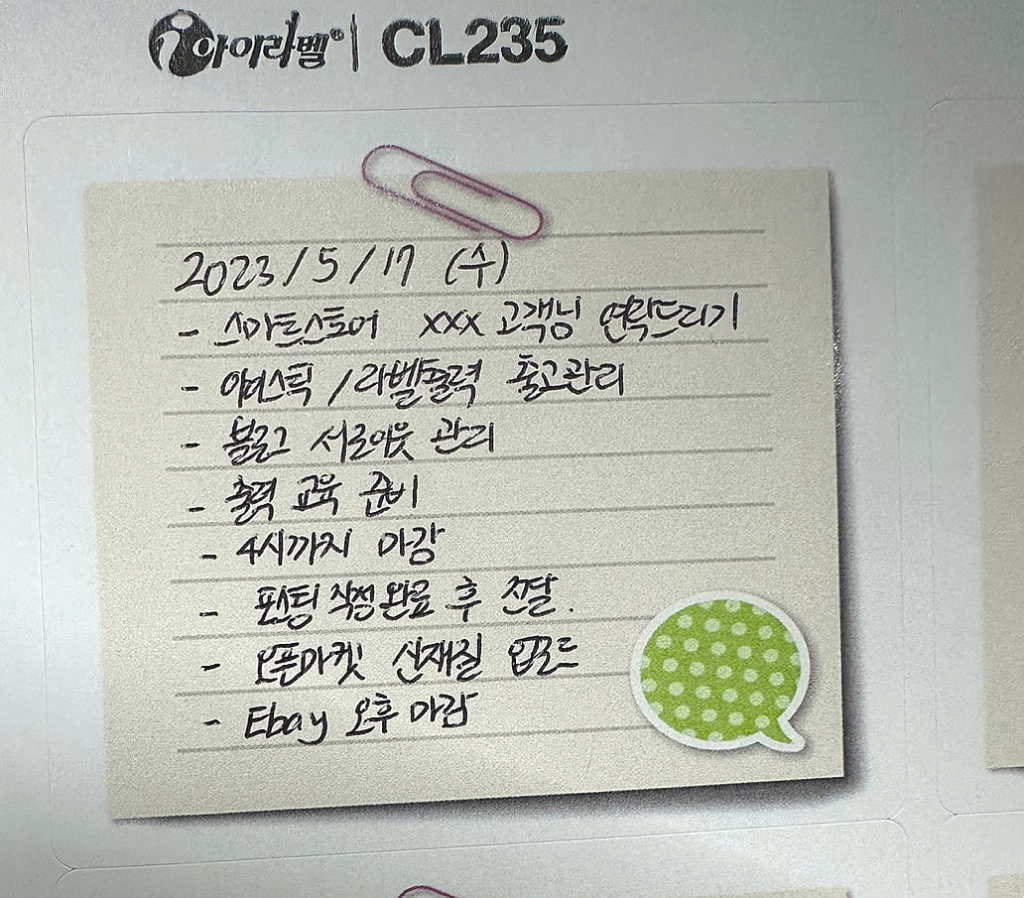 아이라벨 | CL235
2023/5/17 (수)
- 스마트스토어 xxx 고객님 연락드리기
- /라벨출력 출고관리
- 블로그 서로이웃 관리
- 출력 교육 준비
- 4시까지 마감
- 포스팅 작성 완료 후 전달.
- 오픈마켓 신재질 업로드
- Ebay 오후 마감